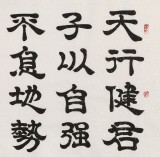 天行健君
子以自强
不息地勢